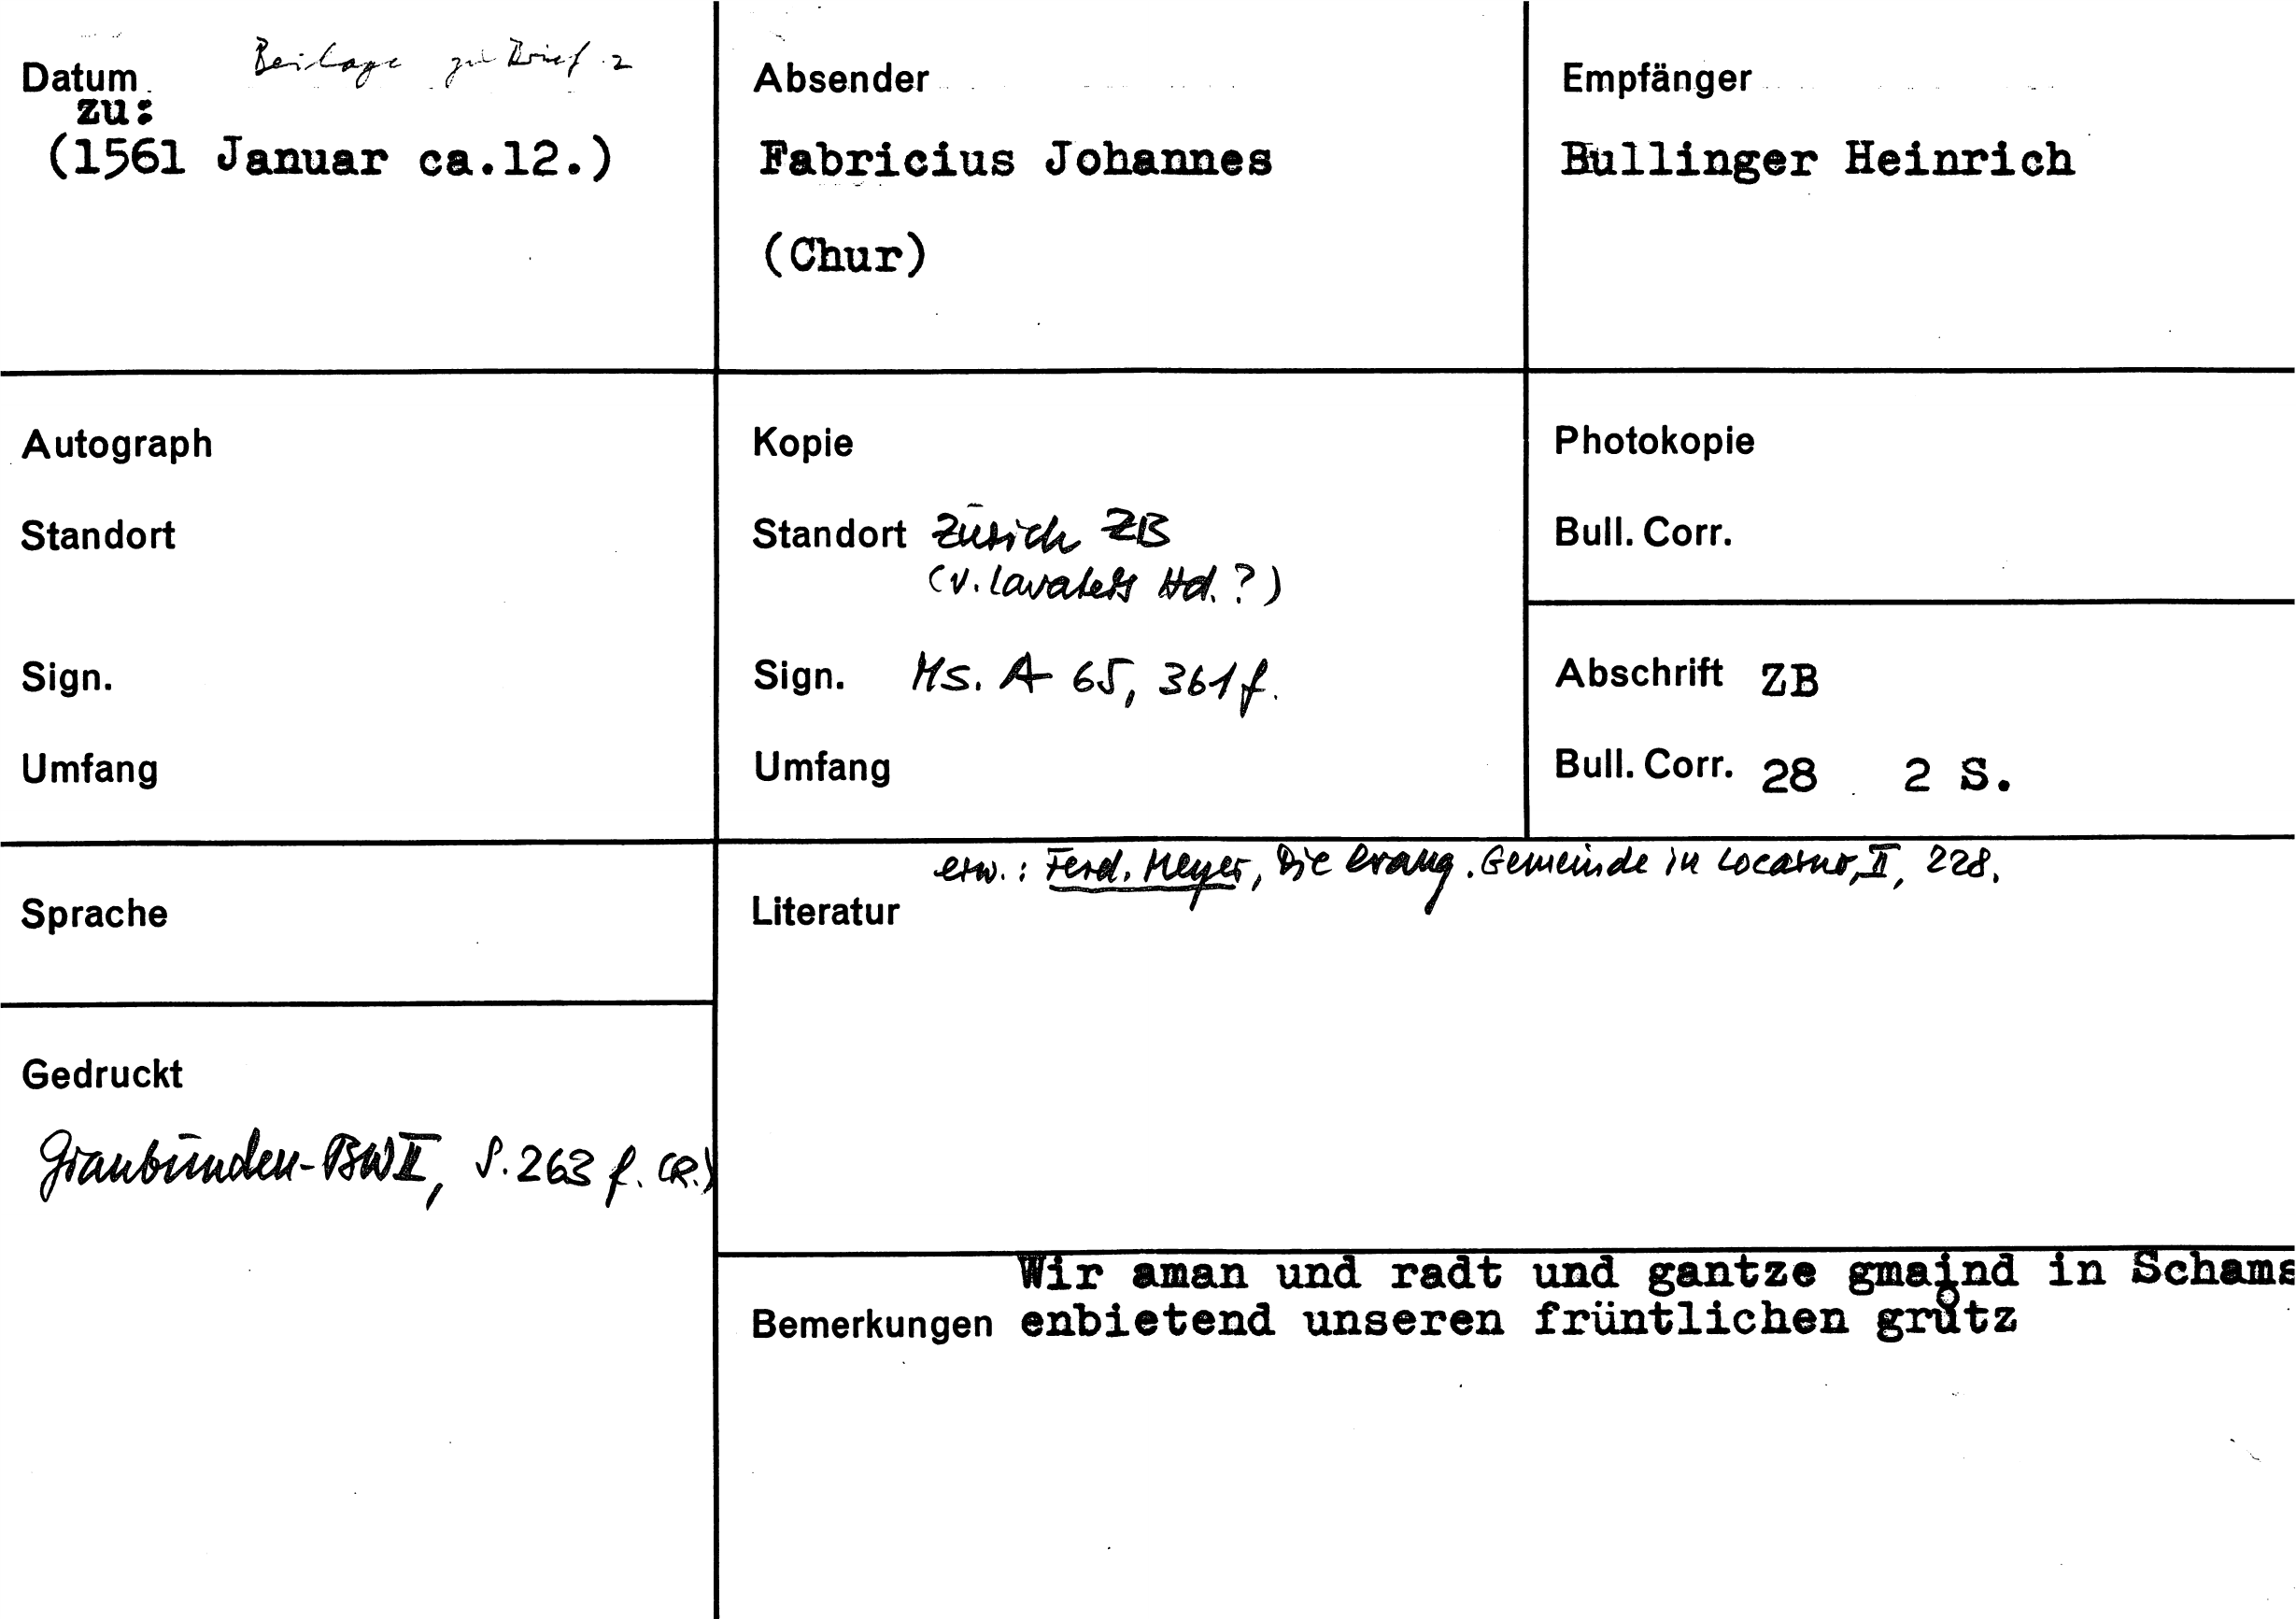 Datum
Beilage zu Brief 2
zu:
(1561 Januar ca.12.)
Absender
Fabricius Johannes
(Chur)
Empfänger
Bullinger Heinrich
Autograph
Standort
Sign.
Umfang
Kopie
Standort Zürich ZB
(v. Lavaters Hd.?)
Sign. Ms. A 65, 361 f.
Umfang
Photokopie
Bull. Corr.
Abschrift ZB
Bull. Corr. 28 2 S.
Sprache
Gedruckt
Graubünden-BW II, S. 263 f. (R.)
erw.: Ferd. Meyer, Die evang. Gemeinde in Locarno, II, 228.
Literatur
Wir aman und radt und gantze gmaind in Schams
Bemerkungen enbietend unseren früntlichen grůtz